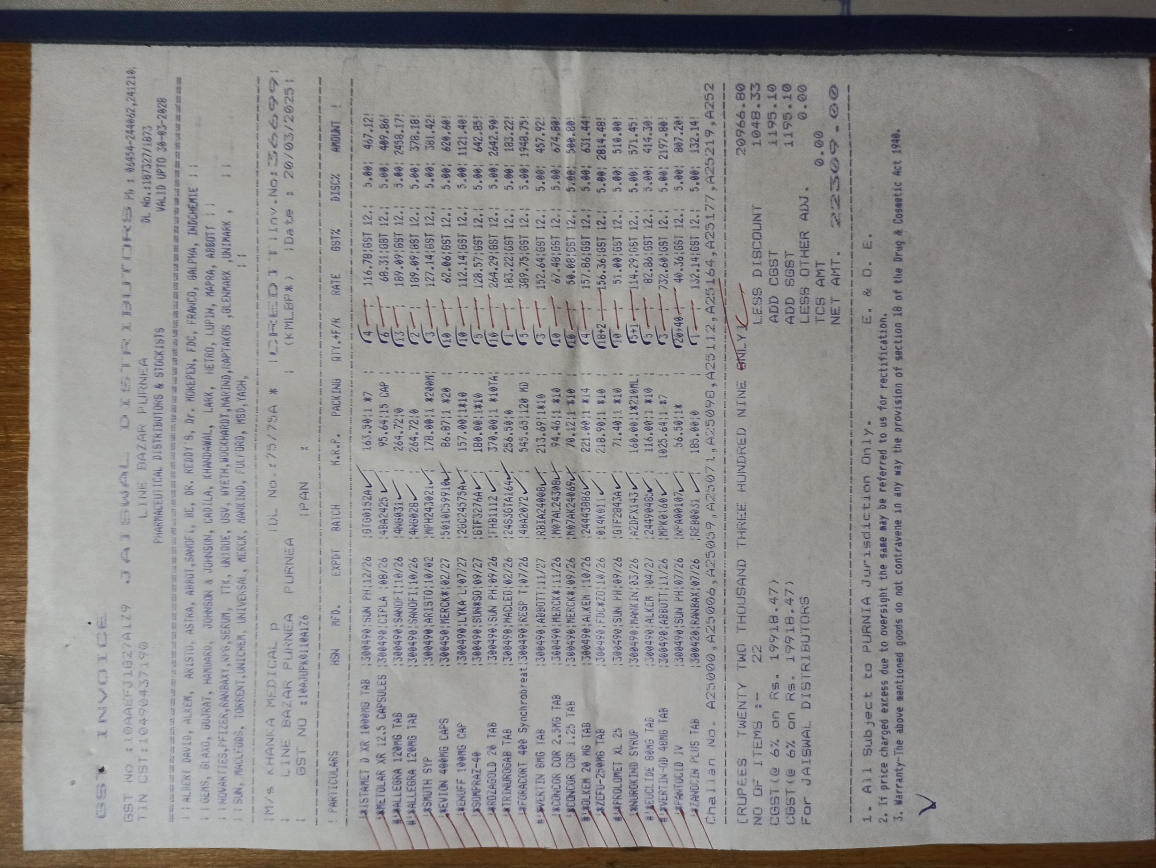 GST INVOICE
GST NO :10AAEFJ1827A1Z9 JAISWAL DISTRIBUTORS Ph : 06454-244062,241210,
TIN CST:10490437190 LINE BAZAR PURNEA DL No.:187327/1873
PHARMACEUTICAL DISTRIBUTORS & STOCKISTS VALID UPTO 30-03-2028
ALBERT DAVID, ALKEM, ARISTO, ASTRA, ABBOT,SANOFI, BE, DR. REDDY S, Dr. MOREPEN, FDC, FRANCO, GALPHA, INDCHEMIE
GEMS, GLAXO, GUJRAT, HANDARD, JOHNSON & JOHNSON, CADILA, KHANDAWAL, LARK, METRO, LUPIN, MAPRA, ABBOTT
NOVARTIES,PFIZER,RANBAXY,RPG,SERUM, TTK, UNIQUE, USV, WYETH,WOCKHARDT,MARIND,RAPTAKOS ,GLENMARK ,UNIMARK ,
SUN, MACLEODS, TORRENT,UNICHEM, UNIVERSAL, MERCK, MANKIND, FULFORD, MSD,YASH,
M/s KHANKA MEDICAL p DL No :75/75A * CREDIT Inv.No:36699
LINE BAZAR PURNEA PURNEA (KMLBP*) Date : 20/03/2025
GST NO :10AJUPK0110A1Z6 PAN :
PARTICULARS HSN MFD. EXPDT BATCH M.R.P. PACKING QTY.+F/R RATE GST% DISC% AMOUNT
ISTAMET D XR 1000MG TAB 300490 SUN PH 12/26 GTG0152A 163.50 1 *7 4 116.78 GST 12. 5.00 467.12
METOLAR XR 12.5 CAPSULES 300490 CIPLA 08/26 4BA2425 95.64 15 CAP 6 68.31 GST 12. 5.00 409.86
ALLEGRA 120MG TAB 300490 SANOFI 10/26 4NG031 264.72 0 13 189.09 GST 12. 5.00 2458.17
ALLEGRA 120MG TAB 300490 SANOFI 10/26 4NG028 264.72 0 2 189.09 GST 12. 5.00 378.18
SMUTH SYP 300490 ARISTO 10/02 MOH243021 178.00 1 *200M 3 127.14 GST 12. 5.00 381.42
EVION 400MG CAPS 300450 MERCK* 02/27 5010C59910 86.87 1 *20 10 62.06 GST 12. 5.00 620.60
ENUFF 100MG CAP 300490 LYKA L 07/27 2GC24575A 157.00 1*10 10 112.14 GST 12. 5.00 1121.40
SOMPRAZ-40 300490 SUN*SO 09/27 GTF3276A 180.00 *10 5 128.57 GST 12. 5.00 642.85
ROZAGOLD 20 TAB 300490 SUN PH 09/26 FHB1112 370.00 1 *10TA 10 264.29 GST 12. 5.00 2642.90
TRINUROGAB TAB 300490 MACLEO 02/26 24SJGTA164 256.50 0 1 183.22 GST 12. 5.00 183.22
FORACORT 400 Synchrobreat 300490 RESP T 07/26 4BA2072 545.65 120 MD 5 389.75 GST 12. 5.00 1948.75
VERTIN 8MG TAB 300490 ABBOTT 11/27 RBIA24008 213.69 *10 3 152.64 GST 12. 5.00 457.92
CONCOR COR 2.5MG TAB 300490 MERCK* 11/26 M07AL24308 94.46 1 *10 10 67.48 GST 12. 5.00 674.80
CONCOR COR 1.25 TAB 300490 MERCK* 09/26 M07AK24069 70.12 1 *10 10 50.08 GST 12. 5.00 500.80
OLKEM 20 MG TAB 300490 ALKEM 10/26 24443886 221.00 1 *14 4 157.86 GST 12. 5.00 631.44
ZEFU-250MG TAB 300490 FDC*ZO 10/26 014K011 218.90 1 *10 18+2 156.36 GST 12. 5.00 2814.48
PROLOMET XL 25 300490 SUN PH 09/26 GTF2843A 71.40 1 *10 10 51.00 GST 12. 5.00 510.00
NUROKIND SYRUP 300490 MANKIN 03/26 A2DFX143 160.00 1*210ML 5+1 114.29 GST 12. 5.00 571.45
EUCLIDE 80MG TAB 300490 ALKEM 04/27 24490485 116.00 1 *10 5 82.86 GST 12. 5.00 414.30
VERTIN-OD 48MG TAB 300490 ABBOTT 11/26 MPK0160 1025.64 1 *7 3 732.60 GST 12. 5.00 2197.80
PANTOCID IV 300490 SUN PH 07/26 NPA00107 56.50 1* 20+40 40.36 GST 12. 5.00 807.20
ZANOCIN PLUS TAB 300420 RANBAX 07/26 REB0031 185.00 0 1 132.14 GST 12. 5.00 132.14
Challan No. A25000,A25006,A25059,A25071,A25098,A25112,A25164,A25177,A25219,A252
[RUPEES TWENTY TWO THOUSAND THREE HUNDRED NINE ONLY] 20966.80
NO OF ITEMS :- 22 LESS DISCOUNT 1048.33
CGST(@ 6% on Rs. 19918.47) ADD CGST 1195.10
CGST(@ 6% on Rs. 19918.47) ADD SGST 1195.10
For JAISWAL DISTRIBUTORS LESS OTHER ADJ. 0.00
TCS AMT 0.00
NET AMT. 22309.00
1 All Subject to PURNIA Jurisdiction Only. E. & O. E.
2. If price charged excess due to oversight the same may be referred to us for rectification.
3. Warranty-The above mentioned goods do not contravene in any way the provision of section 18 of the Drug & Cosmetic Act 1940.